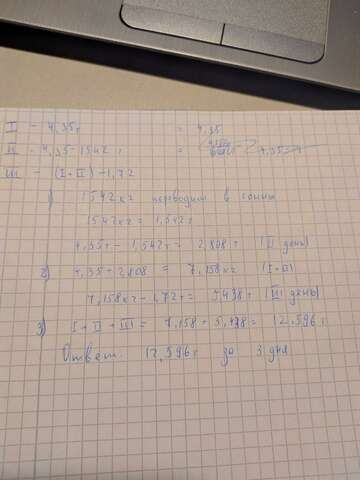 I - 4,35т = 4,35
II - 4,35 - 1542 г = 4,35 -
III - (I+II) - 1,72
1) 1542 кг переводим в тонны
1542 кг = 1,542 т
4,35т - 1,542т = 2,808 т (II день)
2) 4,35 + 2,808 = 7,158 кг (I+II)
7,158 кг - 1,72т = 5,438 т (III день)
3) I + II + III = 7,158 + 5,438 = 12,596 т
Ответ: 12,596 т за 3 дня